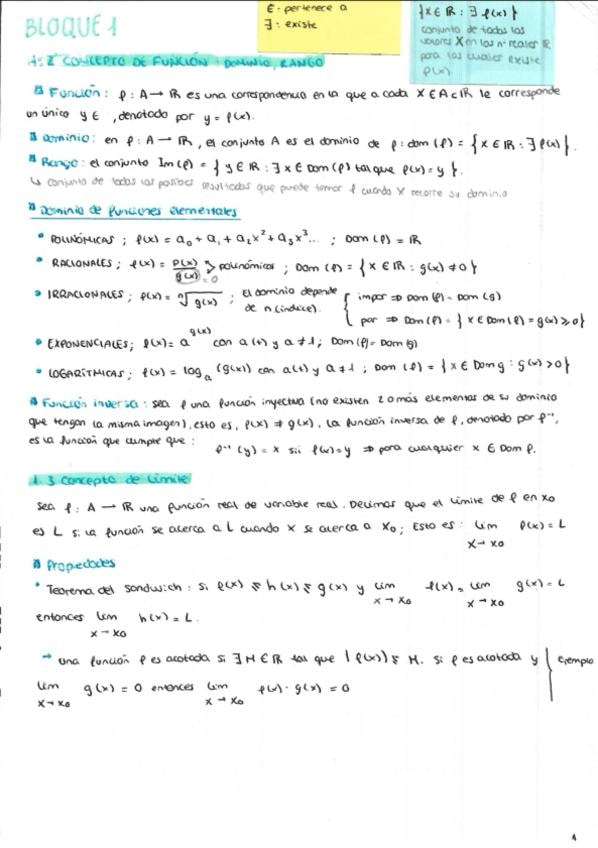 BLOQUE 1
∈: pertenece a
∃: existe
{x ∈ ℝ : ∃ f(x)}
conjunto de todos los
valores X en los nº reales ℝ
para los cuales existe
f(x)
1.2 CONCEPTO DE FUNCIÓN: DOMINIO, RANGO
Función: f: A → ℝ es una correspondencia en la que a cada X ∈ A ⊂ ℝ le corresponde
un único y ∈ , denotado por y = f(x).
Dominio: en f: A → ℝ, el conjunto A es el dominio de f: dom (f) = {x ∈ ℝ : ∃ f(x)}.
Rango: el conjunto Im(f) = {y ∈ ℝ : ∃ x ∈ Dom (f) tal que f(x) = y}.
↳ conjunto de todos los posibles resultados que puede tomar f cuando X recorre su dominio
Dominio de funciones elementales
• POLINÓMICAS; f(x) = a₀ + a₁ + a₂x² + a₃x³... ; Dom (f) = ℝ
• RACIONALES; f(x) = P(x)/g(x) → polinómicas ; Dom (f) = {x ∈ ℝ : g(x) ≠ 0}
= 0
• IRRACIONALES; f(x) = ⁿ√g(x) ; El dominio depende de n (índice). { impar ⇒ Dom (f) = Dom (g)
par ⇒ Dom (f) = {x ∈ Dom (f) = g(x) ≥ 0}
• EXPONENCIALES; f(x) = a^g(x) con a(+) y a ≠ 1; Dom (f) = Dom (g)
• LOGARÍTMICAS; f(x) = logₐ (g(x)) con a(+) y a ≠ 1 ; Dom (f) = {x ∈ Dom g : g(x) > 0}
Función inversa: sea f una función inyectiva (no existen 2 o más elementos de su dominio
que tengan la misma imagen), esto es, f(x) ≠ g(x). La función inversa de f, denotado por f⁻¹,
es la función que cumple que : f⁻¹(y) = x sii f(x) = y ⇒ para cualquier x ∈ Dom f.
1.3 Concepto de Límite
Sea f: A → ℝ una función real de variable real. Decimos que el límite de f en x₀
es L si la función se acerca a L cuando x se acerca a x₀; Esto es: lim f(x) = L
x → x₀
Propiedades
• Teorema del sandwich: si f(x) ≤ h(x) ≤ g(x) y lim f(x) = lim g(x) = L
x → x₀ x → x₀
entonces lim h(x) = L.
x → x₀
→ una función f es acotada si ∃ M ∈ ℝ tal que |f(x)| ≤ M. Si f es acotada y } Ejemplo
lim g(x) = 0 entonces lim f(x) · g(x) = 0
x → x₀ x → x₀
1